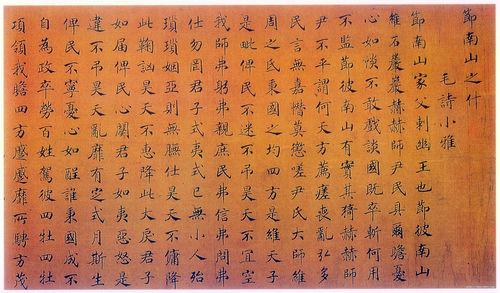 節南山之什
毛詩小雅
節南山家父刺幽王也節彼南山
維石巖巖赫赫師尹民具爾瞻憂
心如惔不敢戲談國既卒斬何用
不監節彼南山有實其猗赫赫師
尹不平謂何天方薦瘥喪亂弘多
民言無嘉憯莫懲嗟尹氏大師維
周之氐秉國之均四方是維天子
是毗俾民不迷不吊昊天不宜空
我師弗躬弗親庶民弗信弗問弗
仕勿罔君子式夷式已無小人殆
瑣瑣姻亞則無膴仕昊天不傭降
此鞠訩昊天不惠降此大戾君子
如屆俾民心闋君子如夷惡怒是
違不吊昊天亂靡有定式月斯生
俾民不寧憂心如酲誰秉國成不
自為政卒勞百姓駕彼四牡四牡
項領我瞻四方蹙蹙靡所騁方茂